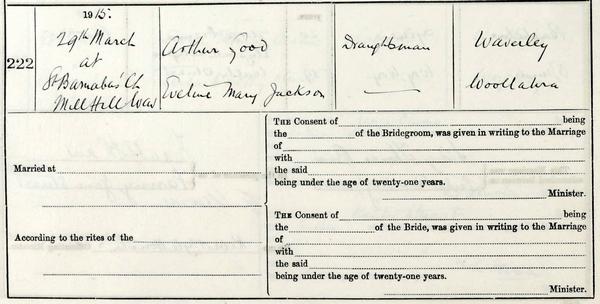 1915.
222
29th March
at
St Barnabas' Ch
Mill Hill Wav
Arthur Good
Eveline Mary Jackson
Draughtsman
—
Waverley
Woollahra
Married at
According to the rites of the
THE CONSENT of being
the of the Bridegroom, was given in writing to the Marriage
of
with
the said
being under the age of twenty-one years.
Minister.
THE CONSENT of being
the of the Bride, was given in writing to the Marriage
of
with
the said
being under the age of twenty-one years.
Minister.